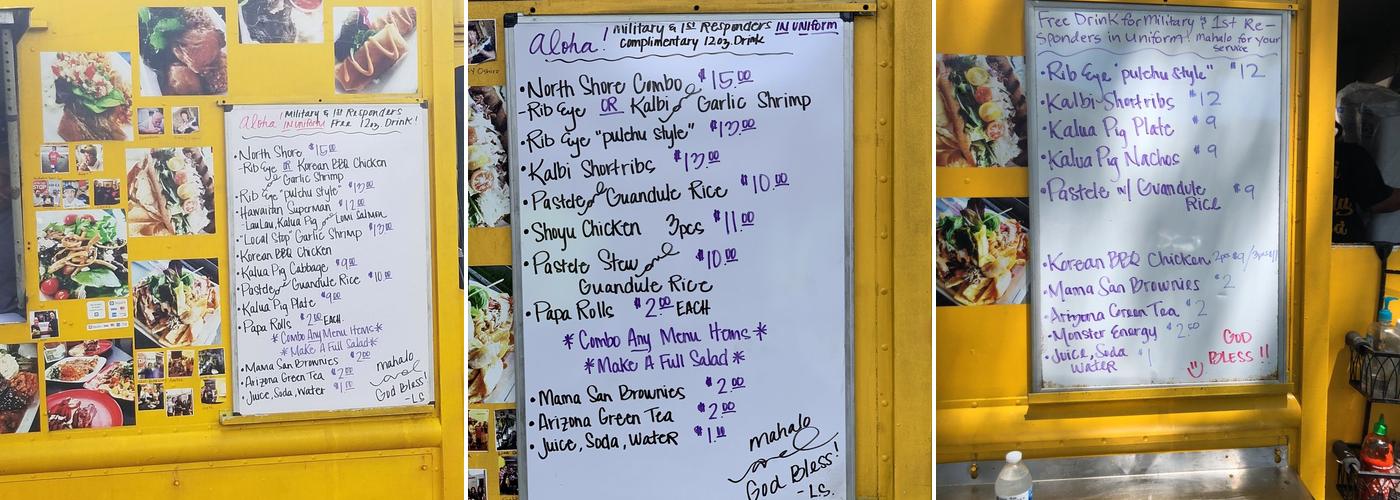 Aloha! Military & 1st Responders
IN Uniform Free 12oz Drink!
• North Shore $15.00
-Rib Eye OR Korean BBQ Chicken
& Garlic Shrimp
• Rib Eye "pulehu style" $13.00
• Hawaiian Superman $12.00
-LauLau, Kalua Pig and Lomi Salmon
• "Local Stop" Garlic Shrimp $13.00
• Korean BBQ Chicken
• Kalua Pig Cabbage $9.00
• Pastele & Guandule Rice $10.00
• Kalua Pig Plate $9.00
• Papa Rolls $2.00 EACH
*Combo Any Menu Items*
*Make A Full Salad*
• Mama San Brownies $2.00
• Arizona Green Tea $2.00
• Juice, Soda, Water $1.00
mahalo
and
God Bless!
-LS
Aloha! Military & 1st Responders IN UNIFORM
Complimentary 12oz. Drink
• North Shore Combo $15.00
-Rib Eye OR Kalbi & Garlic Shrimp
• Rib Eye "pulehu style" $13.00
• Kalbi Shortribs $13.00
• Pastele & Guandule Rice $10.00
• Shoyu Chicken 3pcs $11.00
• Pastele Stew and $10.00
Guandule Rice
• Papa Rolls $2.00 EACH
*Combo Any Menu Items*
*Make A Full Salad*
• Mama San Brownies $2.00
• Arizona Green Tea $2.00
• Juice, Soda, Water $1.00
mahalo
and
God Bless!
-LS.
Free Drink for Military & 1st Re-
sponders in Uniform! Mahalo for your
service
• Rib Eye "pulehu style" $12
• Kalbi Shortribs $12
• Kalua Pig Plate $9
• Kalua Pig Nachos $9
• Pastele w/ Guandule $9
Rice
• Korean BBQ Chicken 2pc $9/3pc $11
• Mama San Brownies $2
• Arizona Green Tea $2
• Monster Energy $2.50
• Juice, Soda $1
Water
GOD
BLESS!!